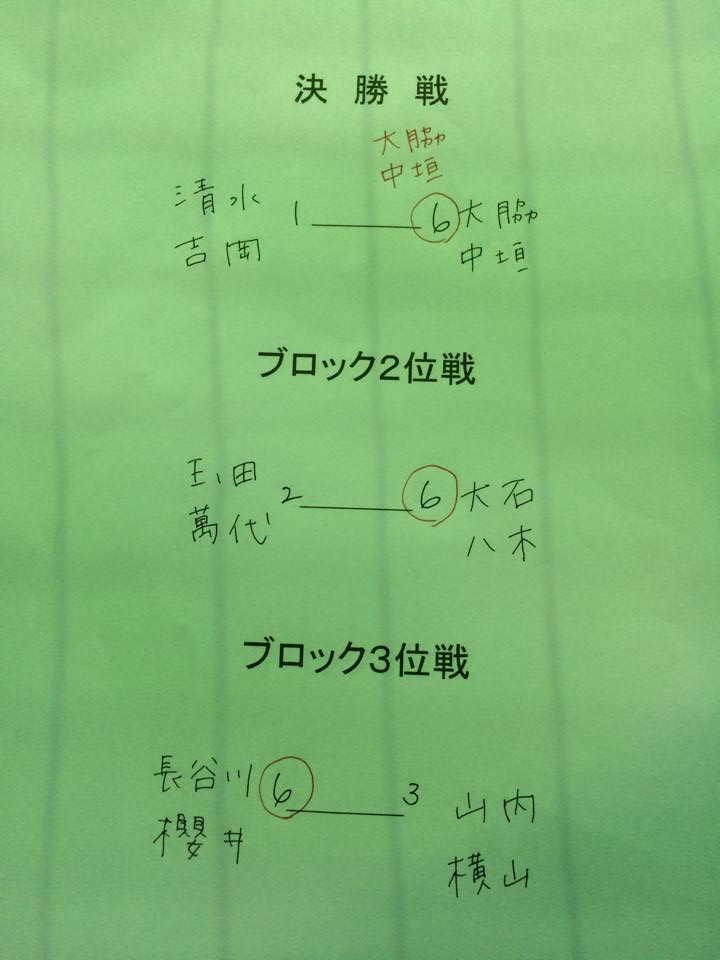 決勝戦
大脇
中垣
清水 1 6 大脇
吉岡 中垣
ブロック2位戦
玉田 2 6 大石
萬代 八木
ブロック3位戦
長谷川 6 3 山内
櫻井 横山